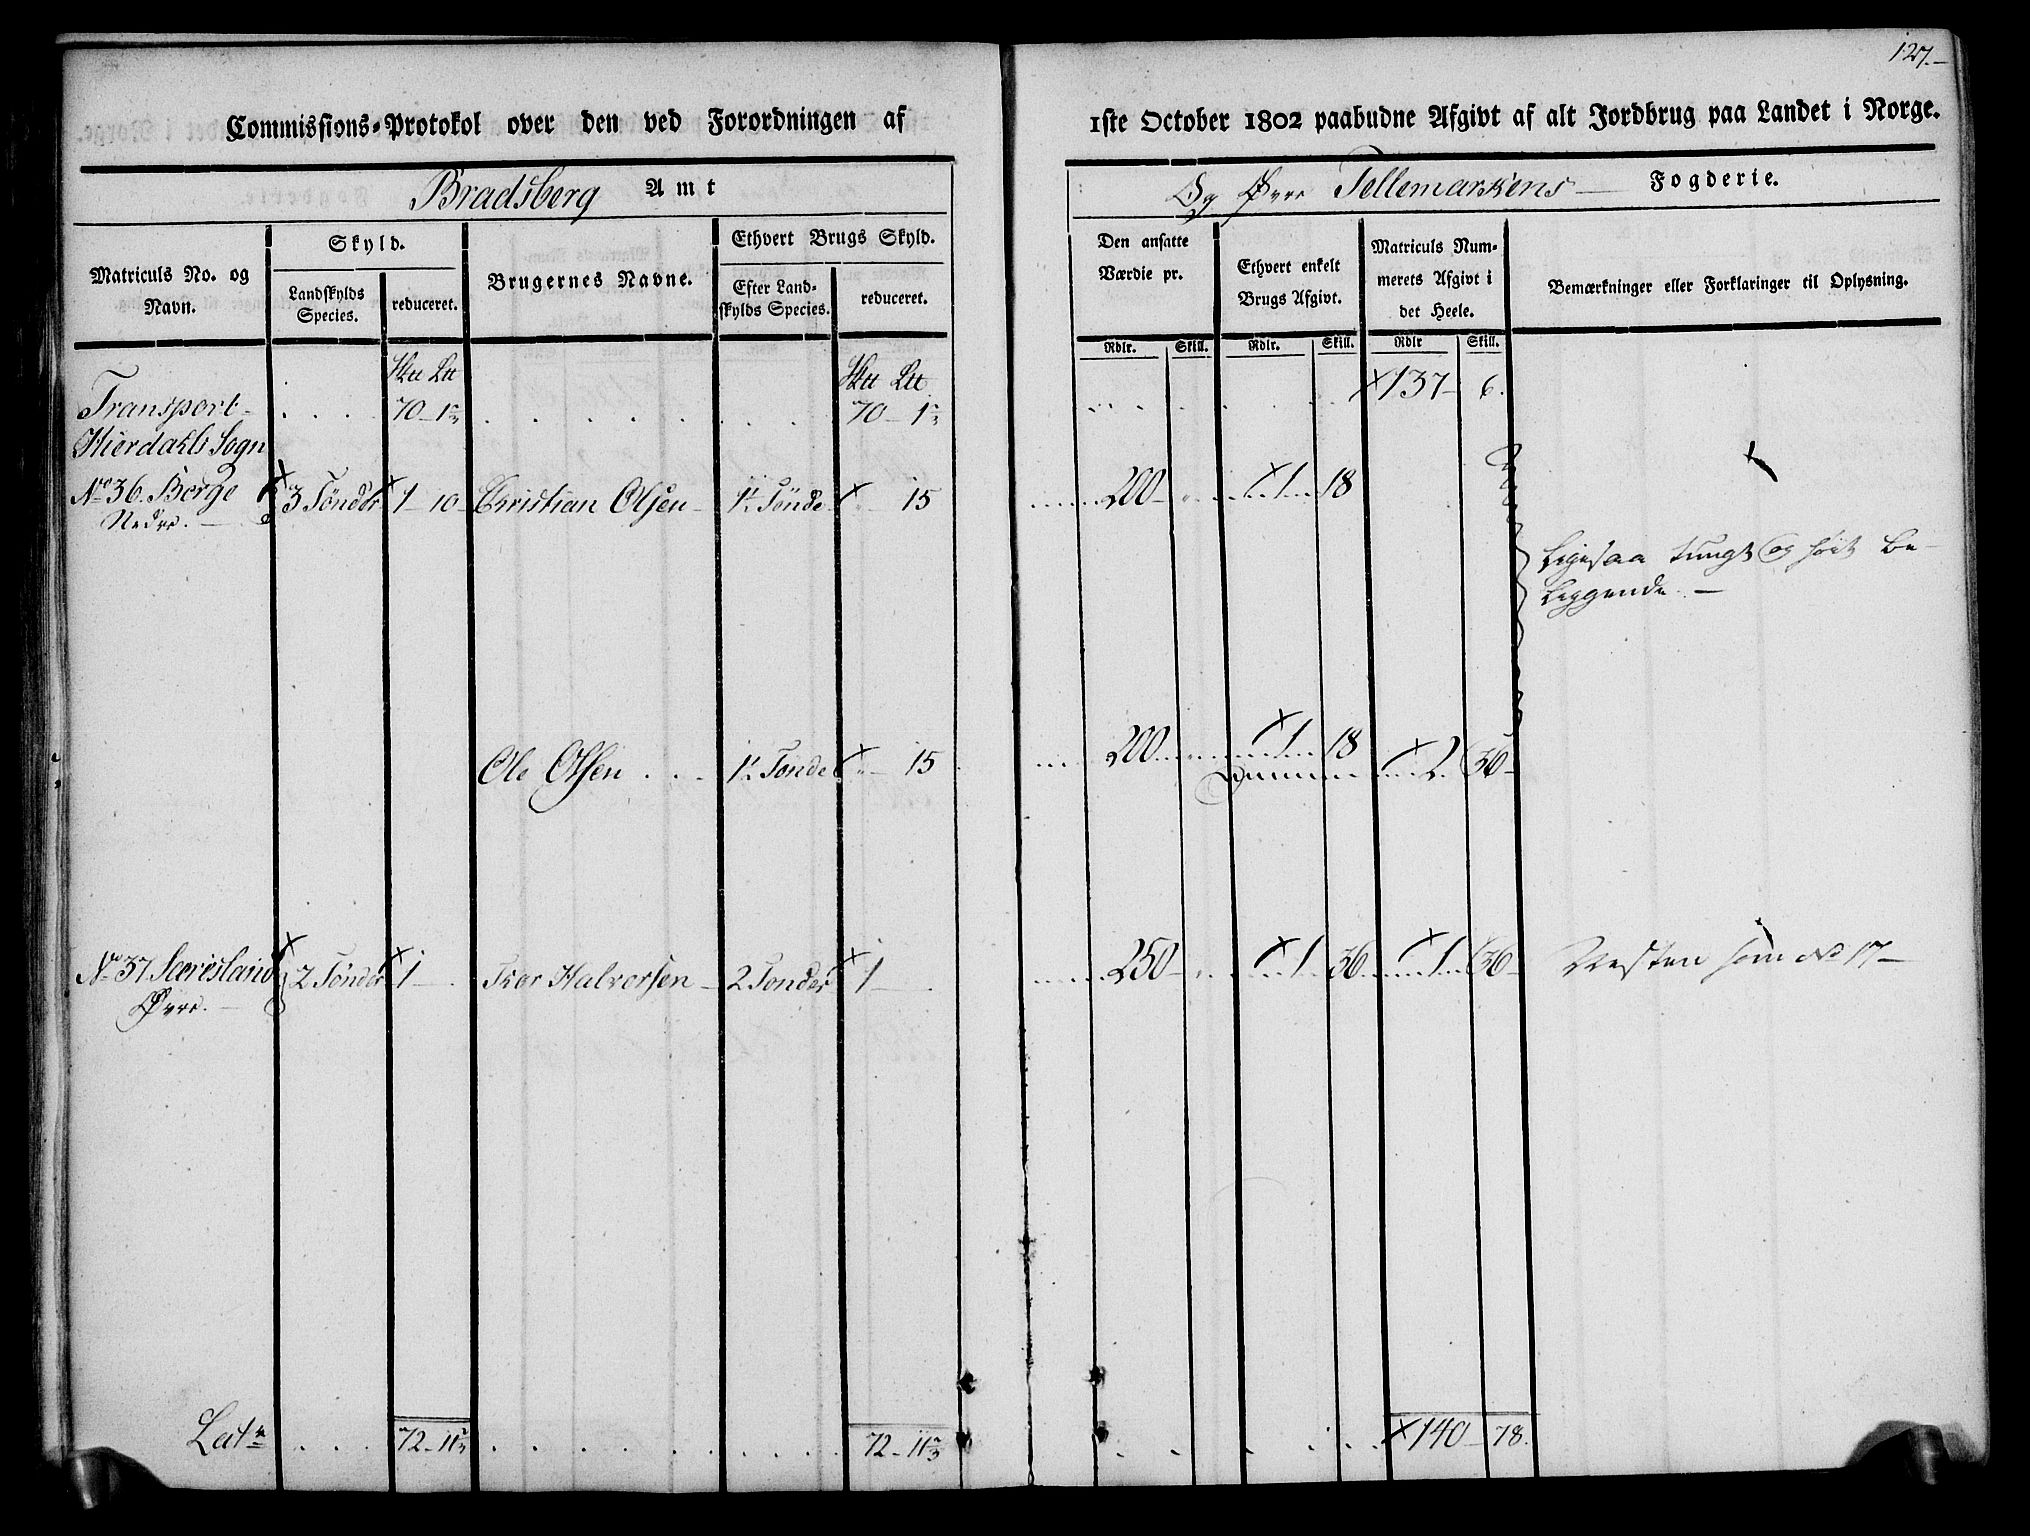 127.
Commissions-Protokol over den ved Forordningen af 1ste October 1802 paabudne Afgivt af alt Jordbrug paa Landet i Norge.
Bradsberg Amt
Og Øvre Tellemarkens Fogderie.
Matriculs No. og Navn.
Skyld.
Landskylds Species.
reduceret.
Brugernes Navne.
Ethvert Brugs Skyld.
Efter Landskylds Species.
reduceret.
Den ansatte Værdie pr.
Ethvert enkelt Brugs Afgivt.
Matriculs Nummerets Afgivt i det Heele.
Bemærkninger eller Forklaringer til Oplysning.
Rdlr. Skill. Rdlr. Skill. Rdlr Skill.
Transport 70 - 1 70 - 1 137 - 6.
Hierdahls Sogn
No 36. Berge 3 Tønder 1 - 10 Christian Olsen 1½ Tønde 15 200 1 18
Nedre.
Ligesaa tungt og høit be-
liggende. -
Ole Olsen 1½ Tønde 15 200 1 18
Summa 2. 36
No 37 2 Tønder 1 Halvorsen 2 Tønder 1 250 1 36 1 36 Næsten som No 17
Øvre.
Lat 72 - 11 72 - 11 140 - 78.